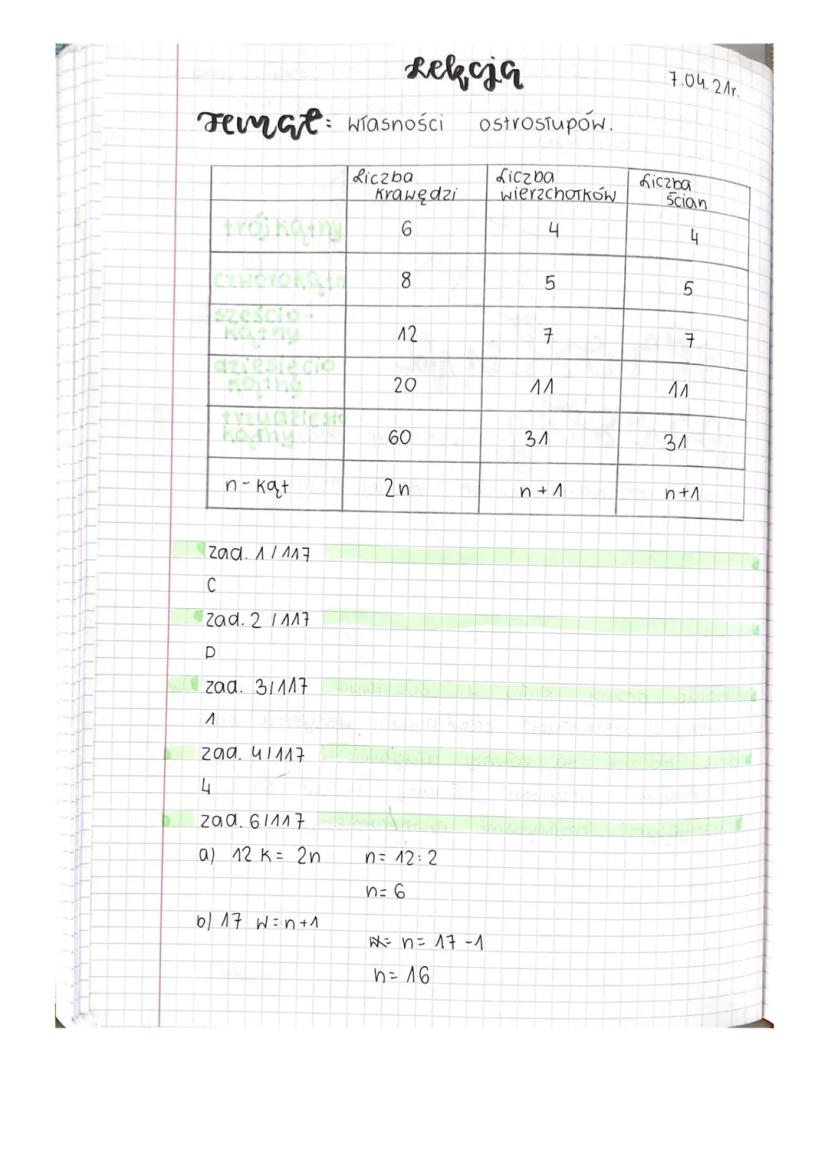 Lekcja
7.04.21r.
Temat: Własności ostrosłupów.
Liczba krawędzi Liczba wierzchołków Liczba ścian
trójkątny 6 4 4
czworokątn 8 5 5
sześcio-
kątny 12 7 7
dziesięcio
kątny 20 11 11
trzydziesto
kątny 60 31 31
n-kąt 2n n+1 n+1
zad. 1/117
C
zad. 2/117
D
zad. 3/117
1
zad. 4/117
4
zad. 6/117
a) 12 K = 2n n = 12:2
n = 6
b) 17 W = n+1
n = 17 -1
n = 16